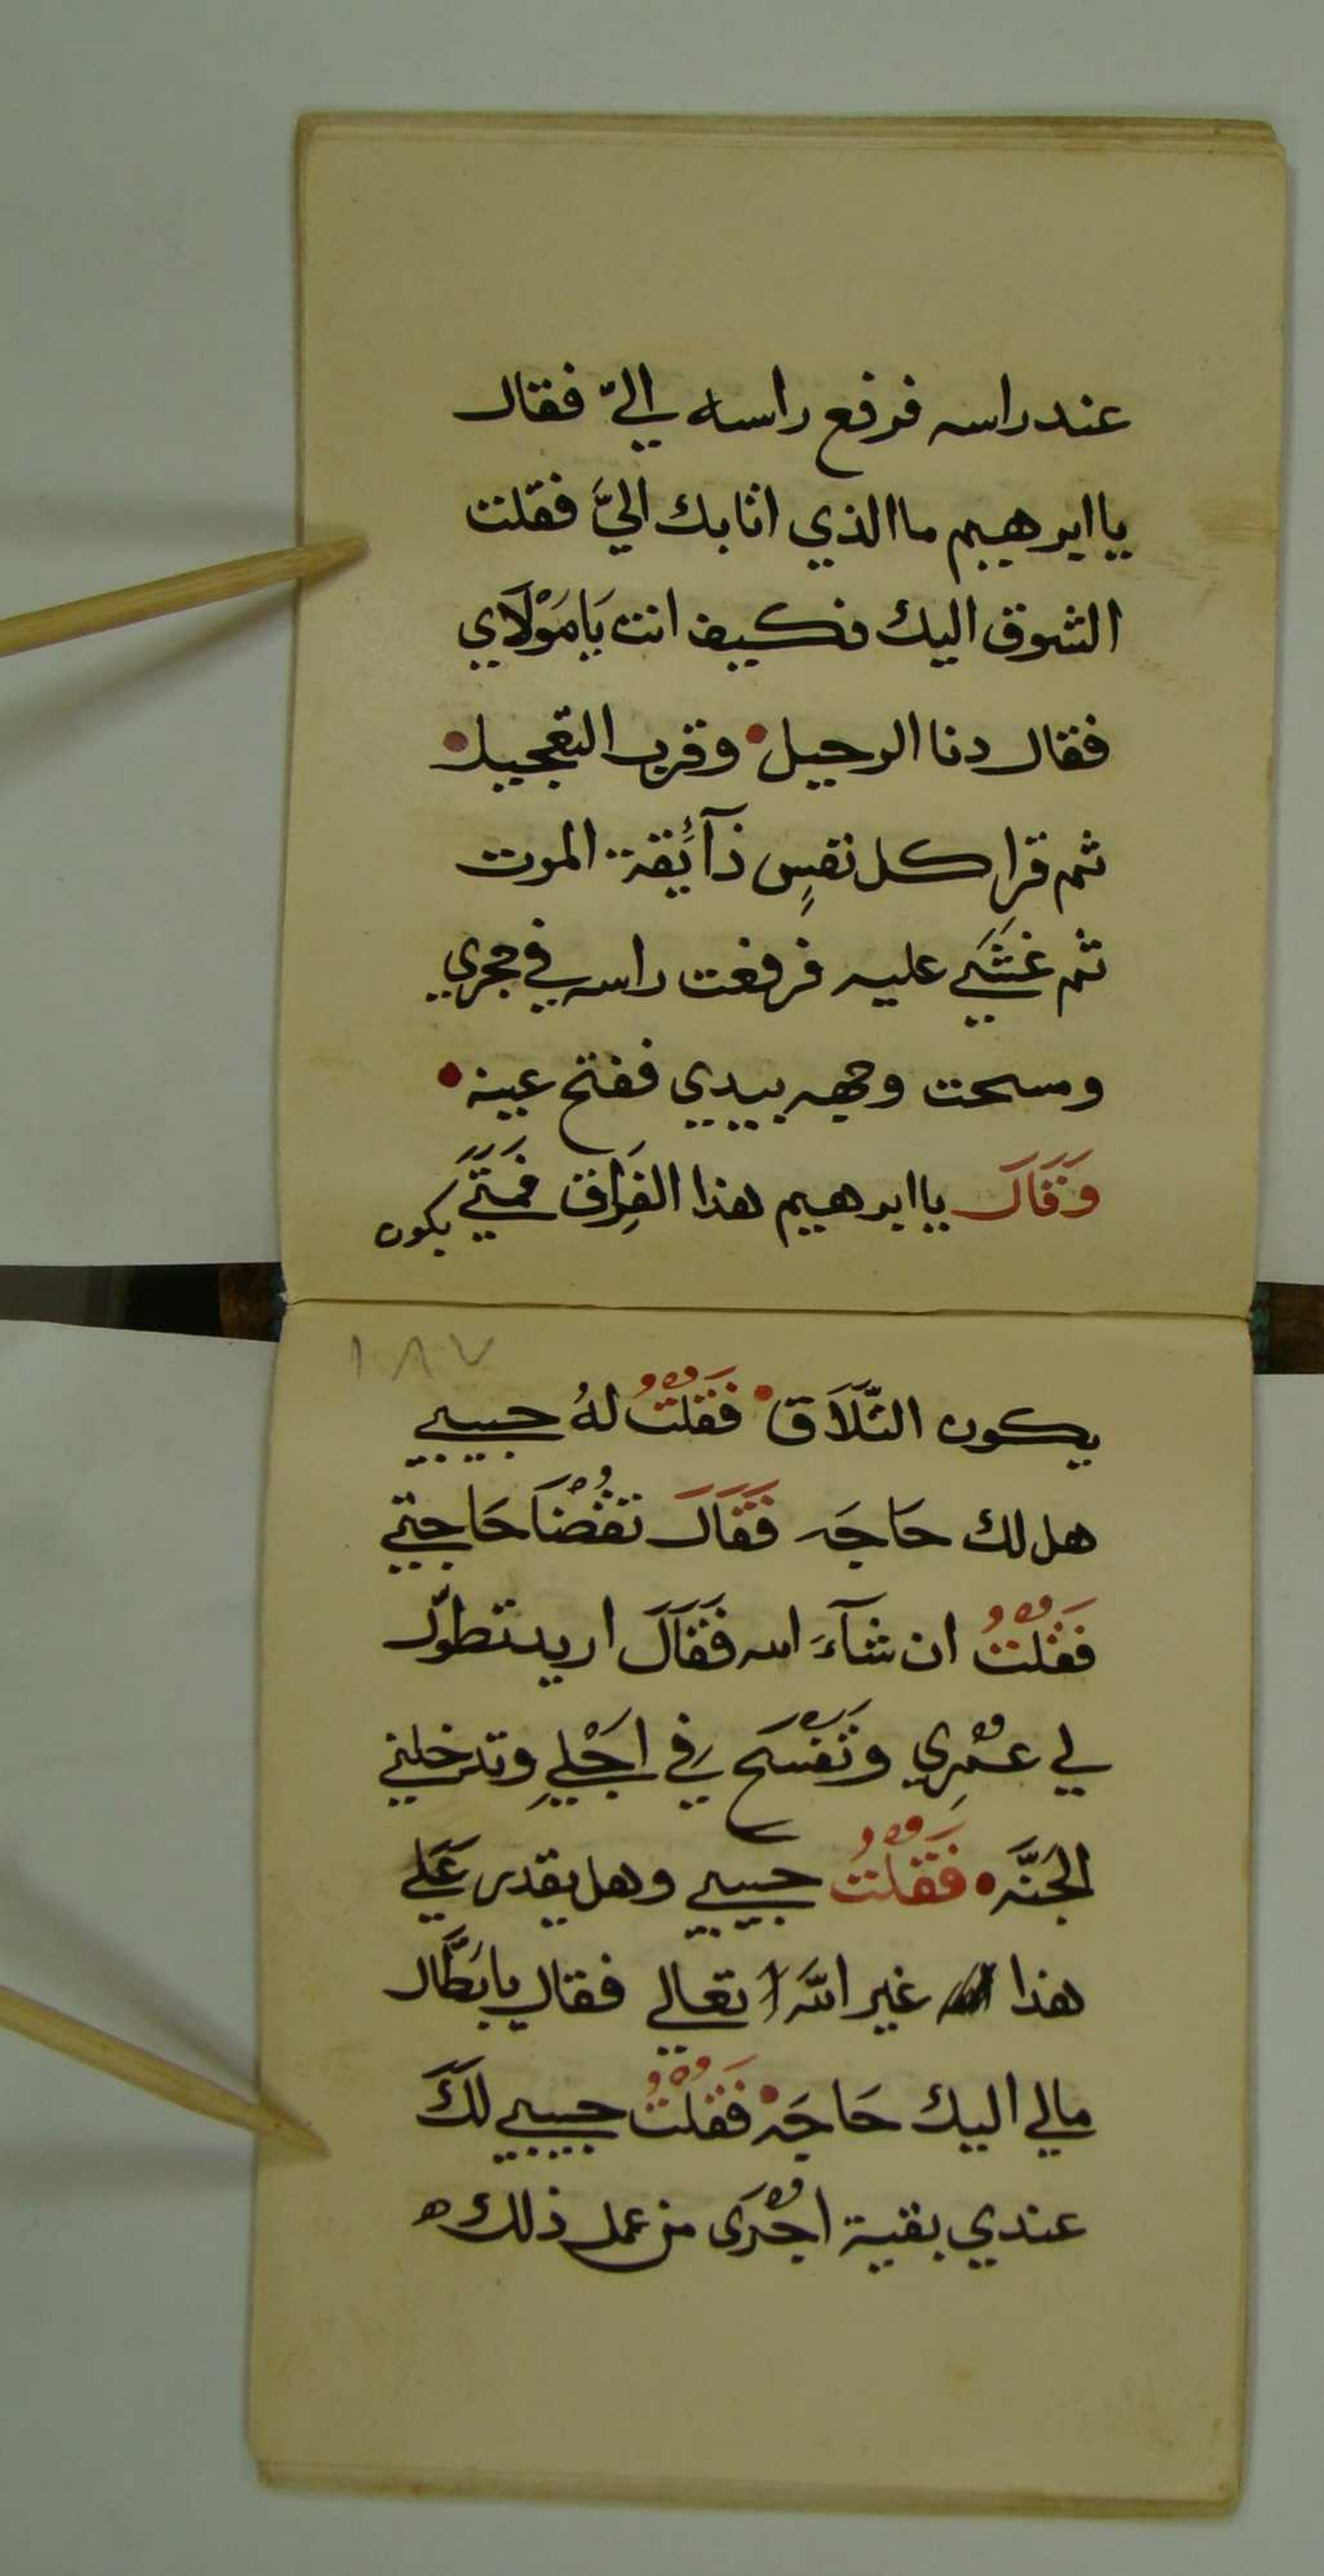 عند راسه فرفع راسه اليّ فقال
يا ابرهيم ما الذي اتا بك اليَّ فقلت
الشوق اليك فكيف انت يَا مَوْلَاي
فقال دنا الرحيل• وقرب التعجيل•
ثم قرا كل نفسٍ ذآئقة الموت
ثم غشَي عليه فرفعت راسه في حجري
ومسحت وجهه بيدي ففتح عينه•
وَقَالَ يا ابرهيم هذا الفِراق فمتَي
يكون
١٨٧
يكون التَّلَاق• فَقُلْتُ لهُ حبيبي
هل لك حَاجَه فَقَالَ تقْضُنا حَاجتي
فَقُلْتُ ان شآءَ الله فَقَالَ اريد تطوّل
لي عمْرِي وتَفْسَح لي في اجَلِي وتدخلني
الجَنَّه• فَقُلْتُ حبيبي وهل يقدر عَلَي
هذا غير الله تعالي فقال يا بَطَّال
مالي اليك حَاجَه• فَقُلْتُ حبيبي لكَ
عندي بقية اجْرَى من عمل ذلك ه